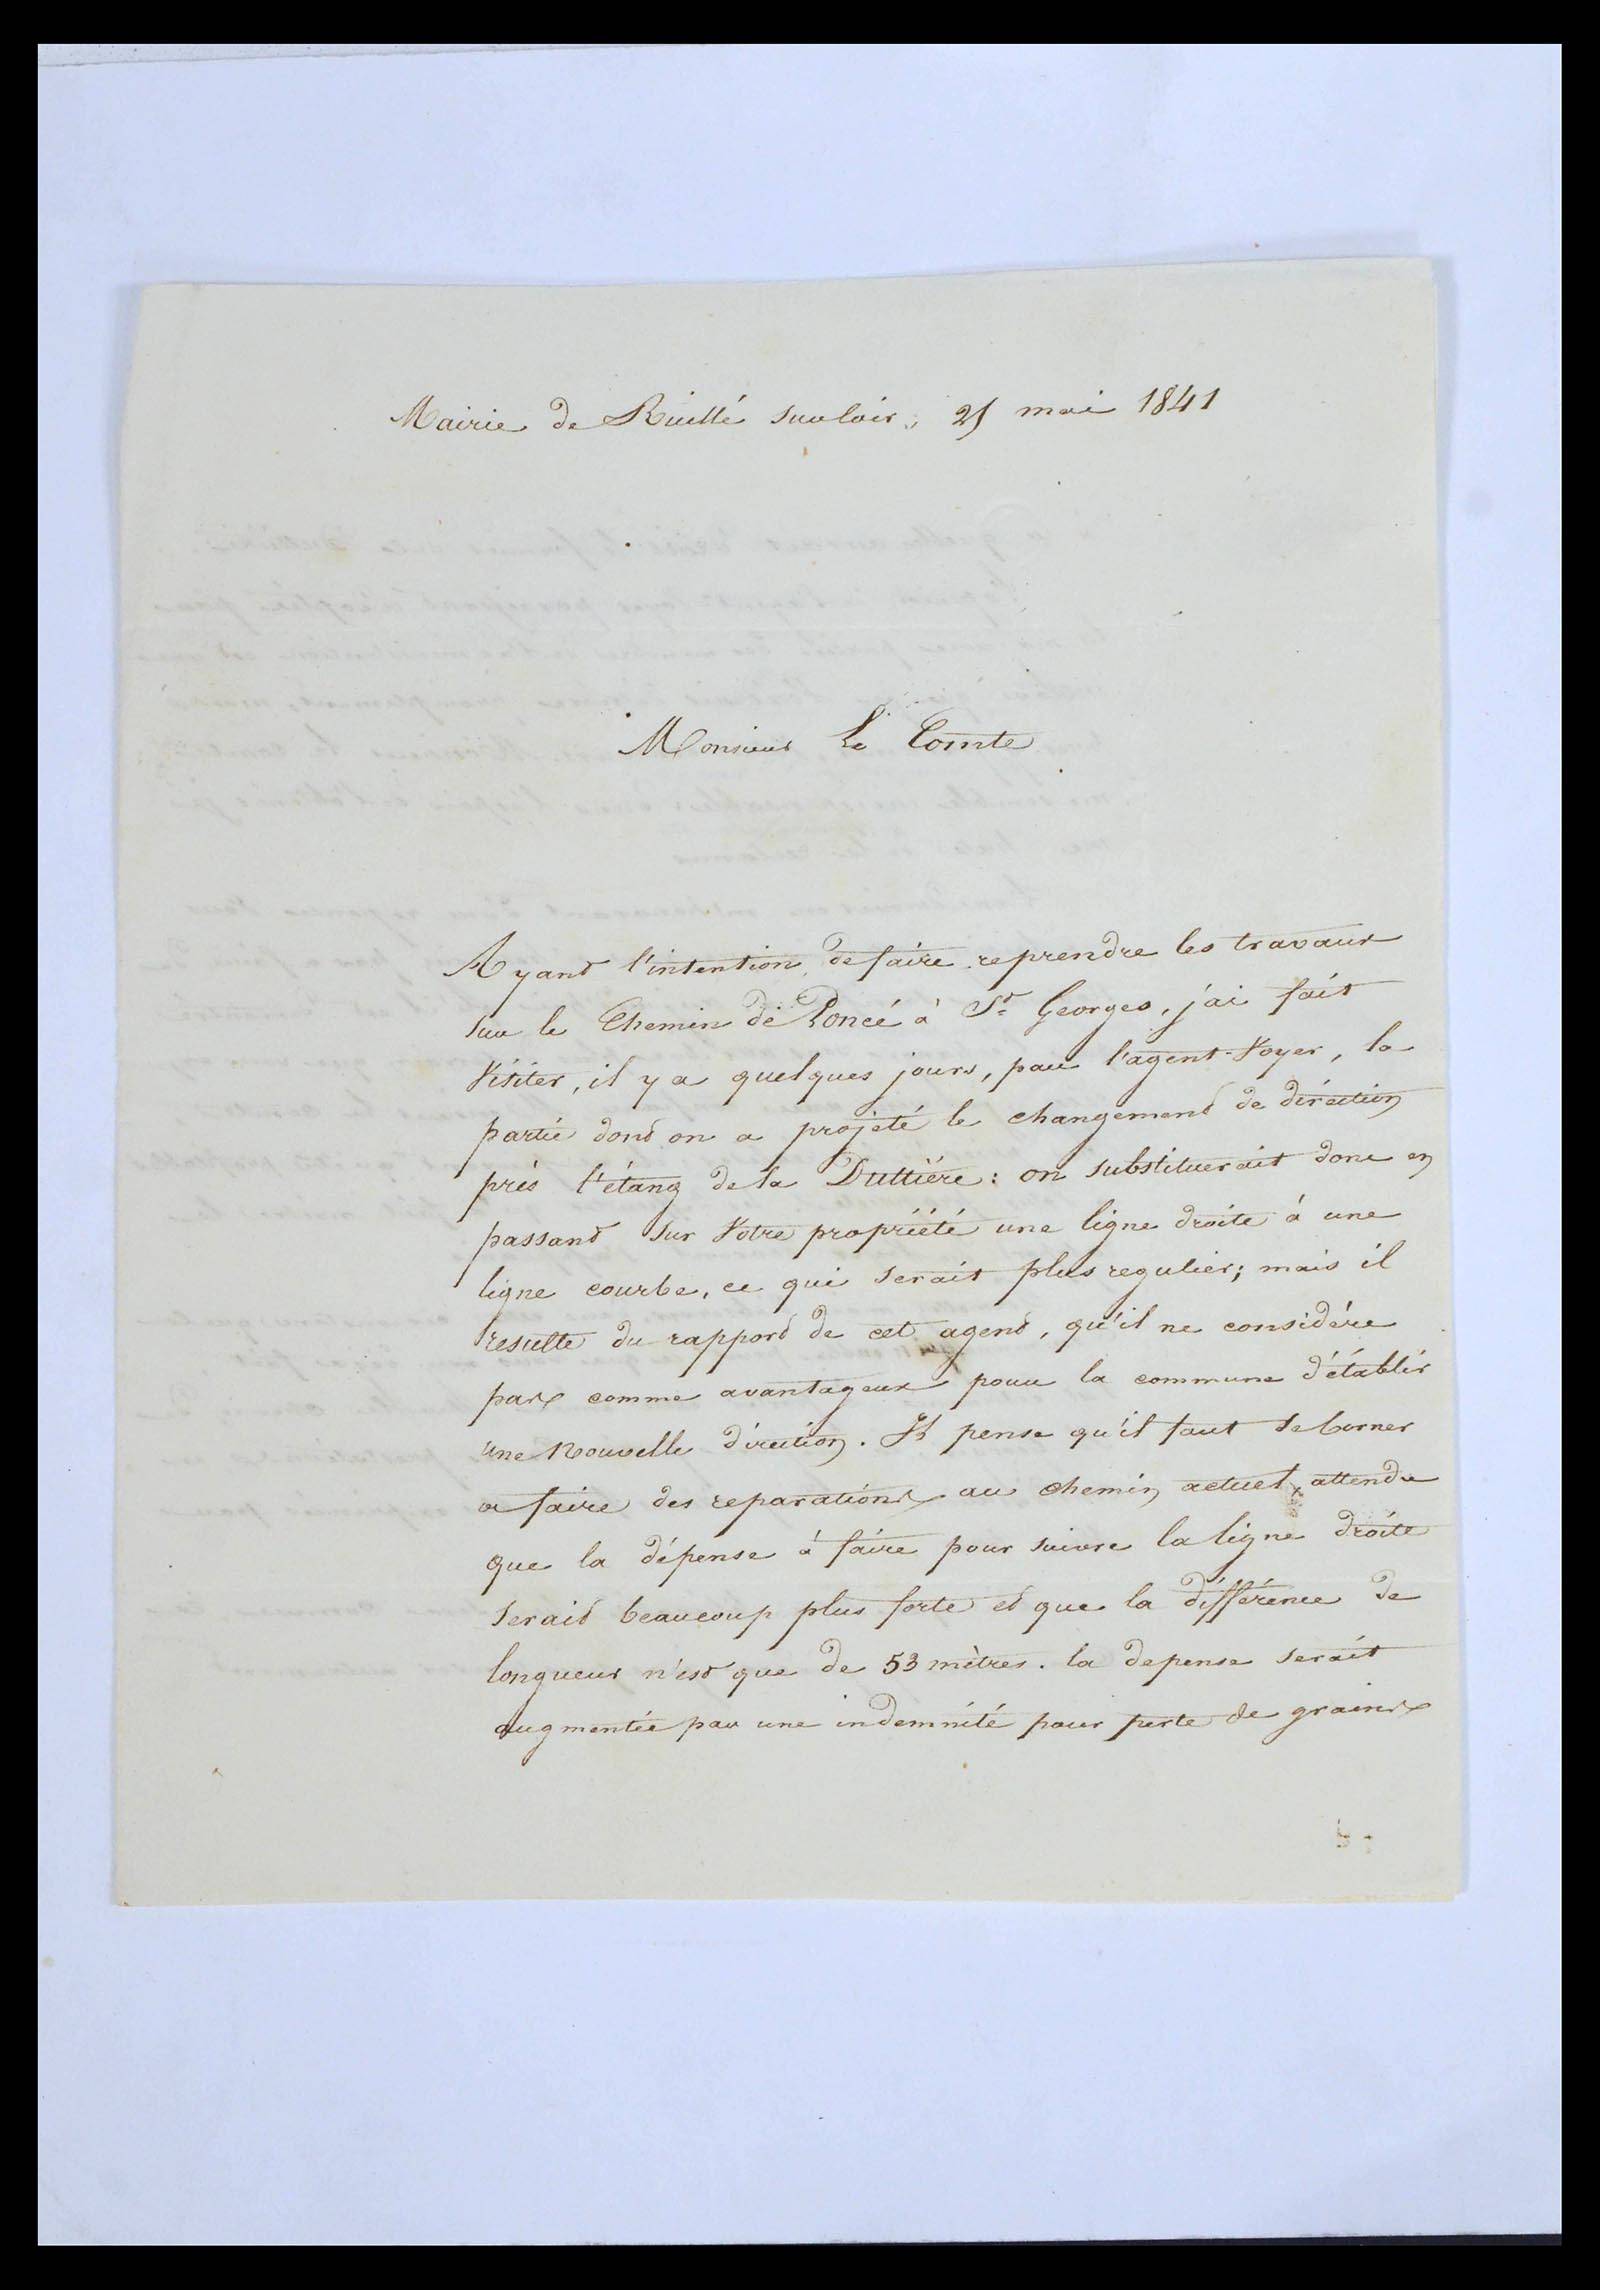 Mairie de Ruillé sur loir, 25 mai 1841
Monsieur Le Comte
Ayant l'intention de faire reprendre les travaux
sur le Chemin de Poncé à St Georges, j'ai fait
visiter, il y a quelques jours, par l'agent-voyer, la
partie dont on a projeté le changement de direction
près l'étang de la Duttière : on substituerait donc en
passant sur votre propriété une ligne droite à une
ligne courbe, ce qui serait plus regulier; mais il
resulte du rapport de cet agent, qu'il ne considère
pas comme avantageux pour la commune d'établir
une nouvelle direction. Il pense qu'il faut se borner
a faire des reparations au chemin actuel, attendu
que la dépense à faire pour suivre la ligne droite
serait beaucoup plus forte et que la différence de
longueur n'est que de 53 mètres. la depense serait
augmentée par une indemnité pour perte de grains